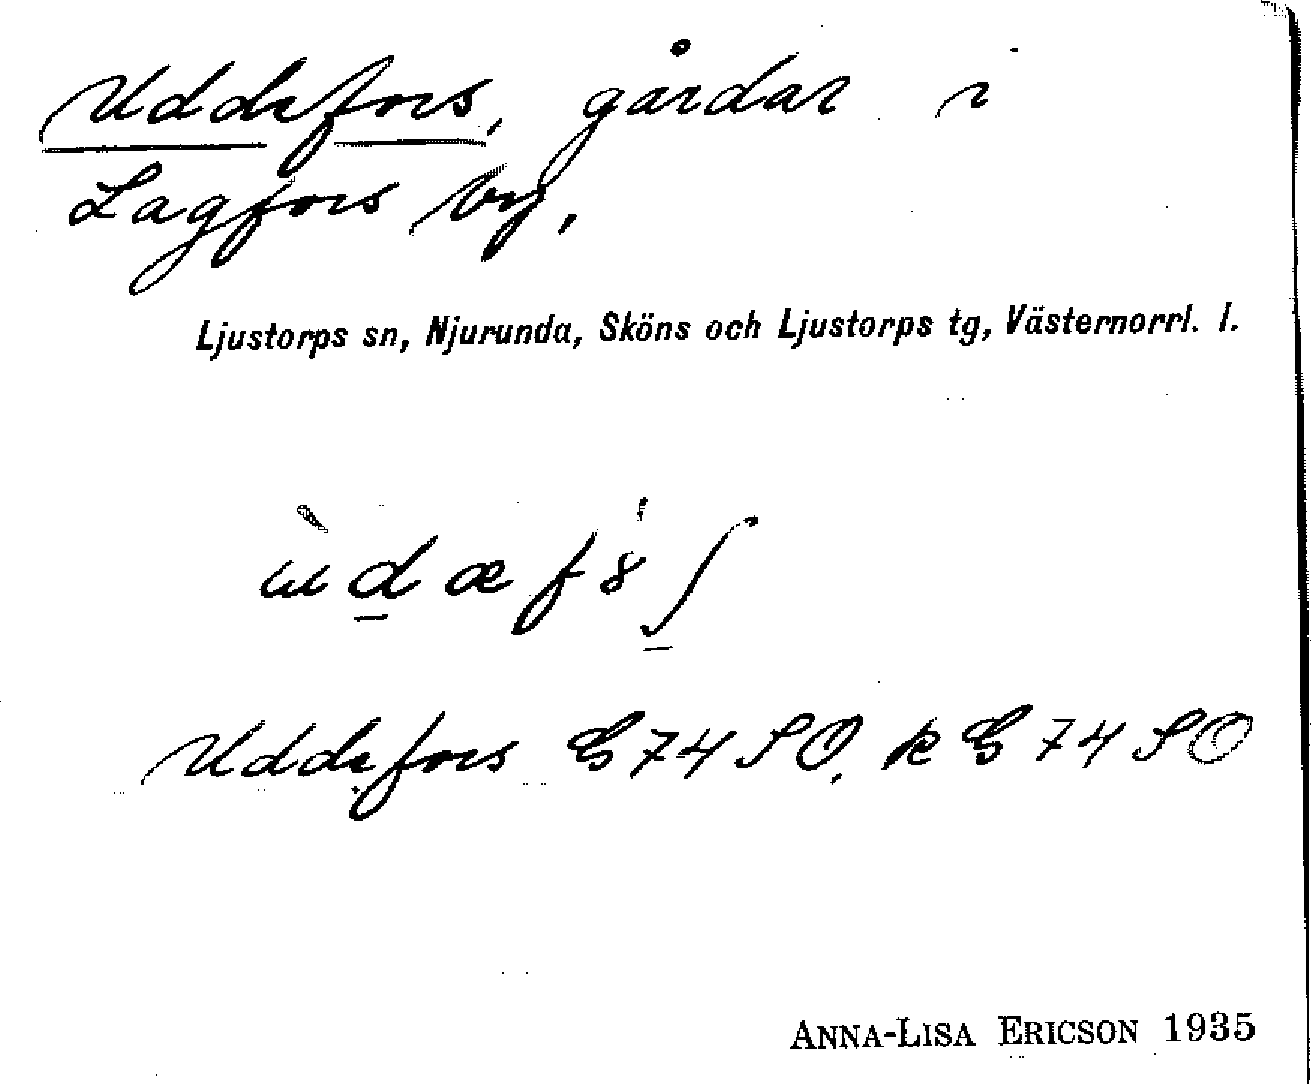 Uddefors, gårdar i
Lagfors by,
Ljustorps sn, Njurunda, Sköns och Ljustorps tg, Västernorrl. l.
Uddefors G 74 SO, k G 74 SO
ANNA-LISA ERICSON 1935